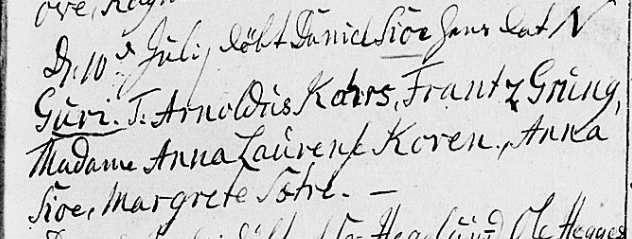 D. 10de Julij döbt Daniel Siøe hans dat N
Guri. T. Arnoldus Kahrs, Frantz Grung,
Madame Anna Laurense Koren, Anna
Siøe, Margrete Sætre. —
Ole Hegges